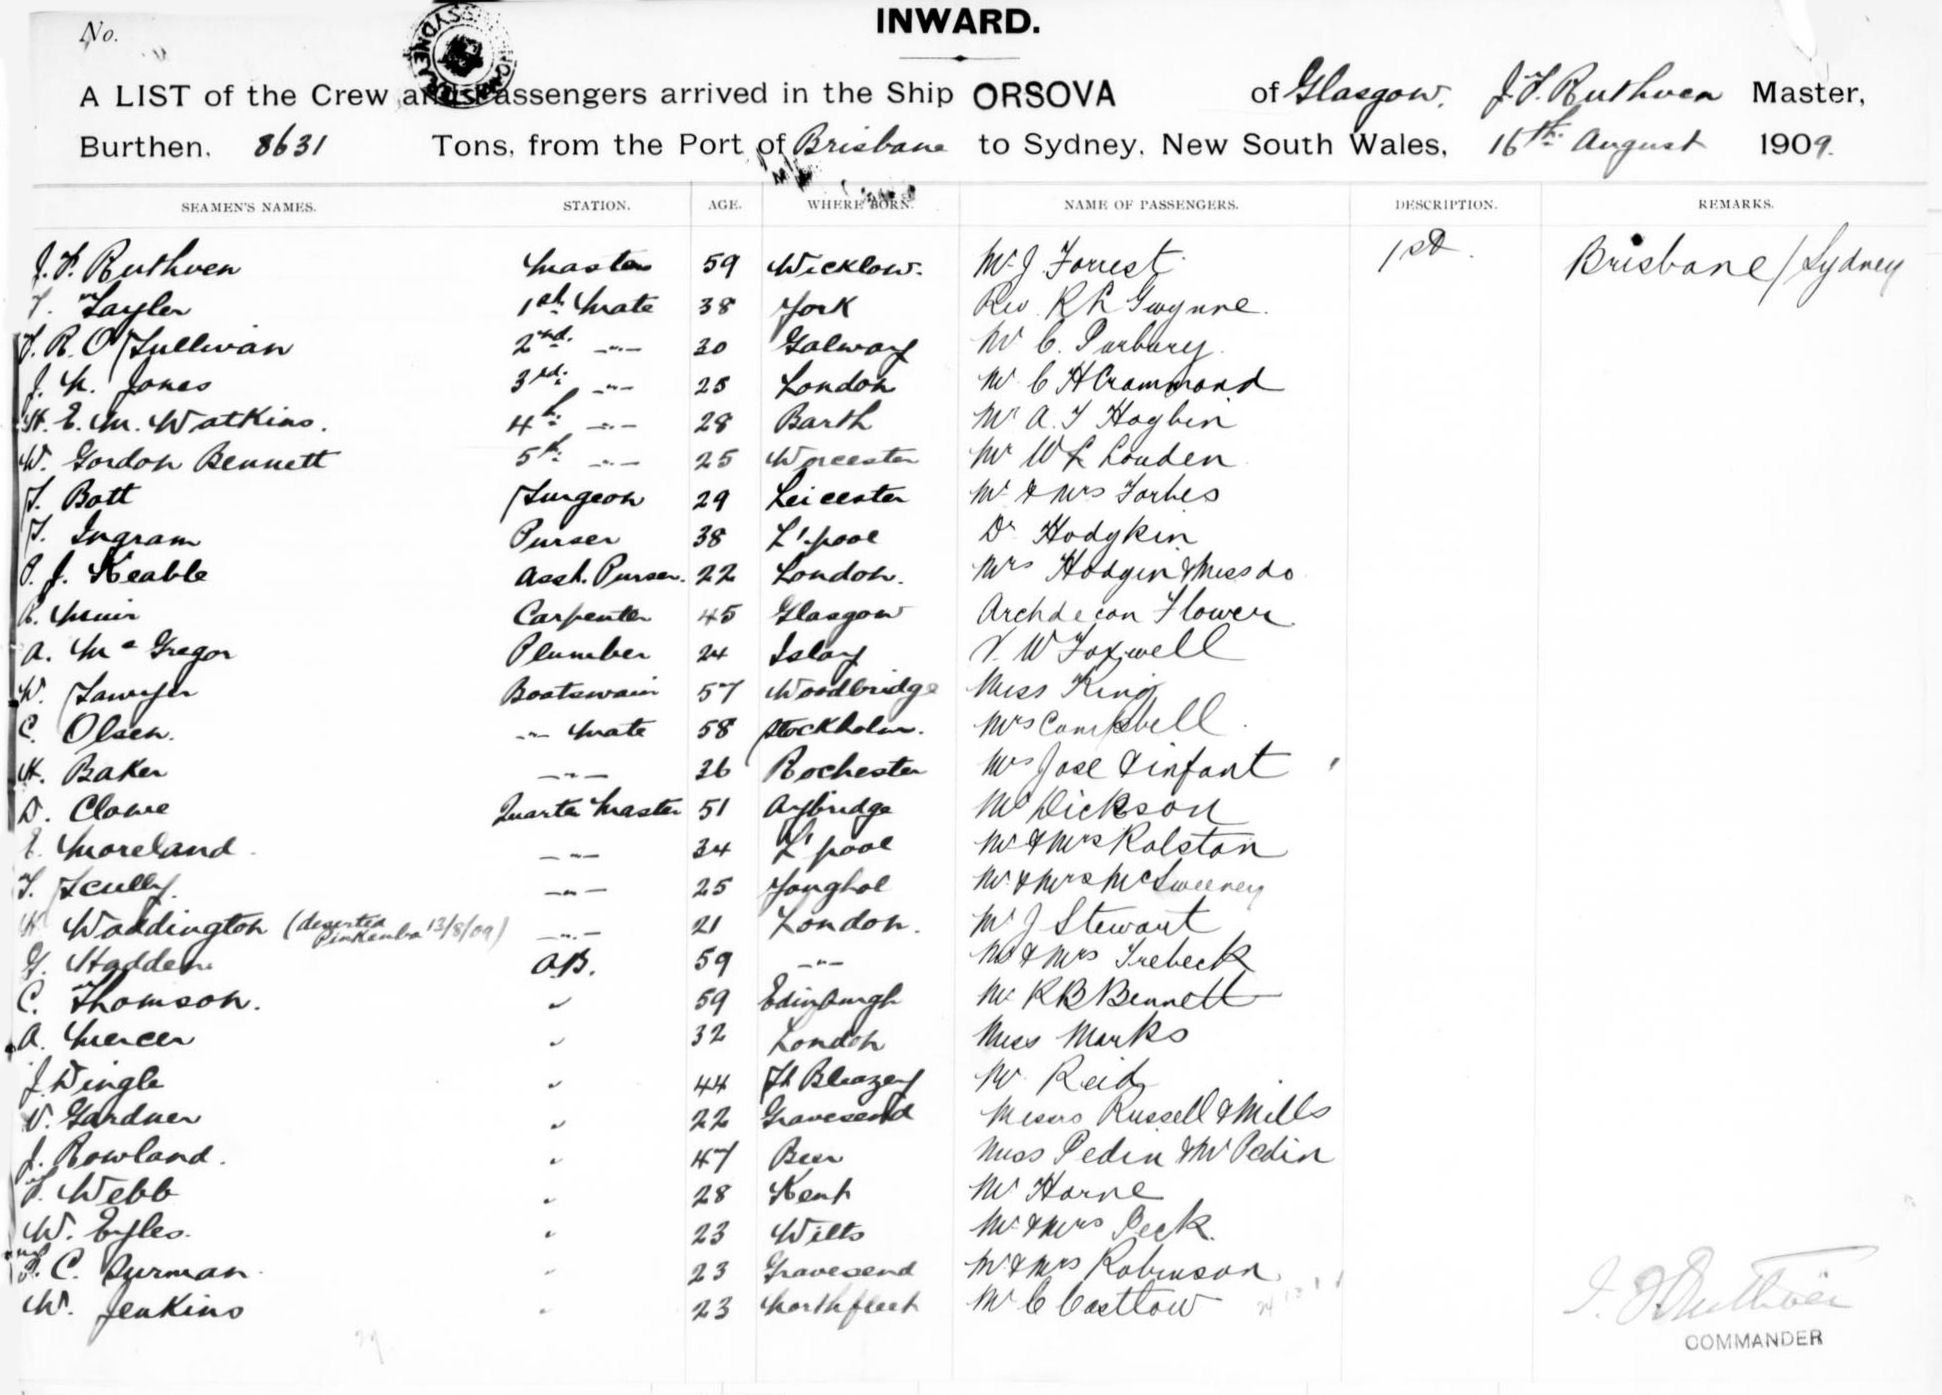 No.
INWARD.
A LIST of the Crew and Passengers arrived in the Ship ORSOVA of Glasgow, J. F. Ruthven Master,
Burthen, 8631 Tons, from the Port of Brisbane to Sydney, New South Wales, 16th August 1909.
SEAMEN'S NAMES. STATION. AGE. WHERE BORN. NAME OF PASSENGERS. DESCRIPTION. REMARKS.
J. F. Ruthven Master 59 Wicklow. Mr J Forrest 1st. Brisbane/Sydney
T. Tayler 1st Mate 38 York Rev. R L Gwynne.
J. R. O'Sullivan 2nd. -"- 30 Galway Mr C. Parbury.
J. H. Jones 3rd. -"- 25 London Mr C H Crammond
H. E. M. Watkins. 4th -"- 28 Barth Mr A. T Hogbin
W. Gordon Bennett 5th -"- 25 Worcester Mr W L Louden
S. Bott Surgeon 29 Leicester Mr & Mrs Forbes
T. Ingram Purser 38 L'pool Dr Hodgkin
P. J. Keable Asst. Purser. 22 London. Mrs Hodgin & Miss do
R. Muir Carpenter 45 Glasgow Archdeacon Flower
A. McGregor Plumber 24 Islay W Foxwell
W. Sawyer Boatswain 57 Woodbridge Miss King
C. Olsen. -"- Mate 58 Stockholm. Mrs Campbell
H. Baker -"- 36 Rochester Mrs Jose & infant
D. Clowe Quarter Master 51 Axbridge Mr Dickson
E. Moreland -"- 34 L'pool Mr & Mrs Ralston
T. Scully. -"- 25 Yonghal Mr & Mrs McSweeney
H Waddington (deserted Pinkenba 13/8/09) -"- 21 London. Mr J Stewart
G. Hadden. A.B. 59 -"- Mr & Mrs Trebeck
C. Thomson. " 59 Edinburgh Mr R B Bennett
A. Mercer " 32 London Miss Marks
J. Dingle " 44 St Blazey Mr Reid
V. Gardner " 22 Gravesend Messrs Russell & Mills
J. Rowland. " 47 Beer Miss Pedin & Mr Pedin
F. Webb " 28 Kent Mr Horne
W. Eyles. " 23 Wilts Mr & Mrs Beck.
C. Surman " 23 Gravesend Mr & Mrs Robinson
W. Jenkins " 23 Northfleet Mr C Castlow
J. F. Ruthven
COMMANDER